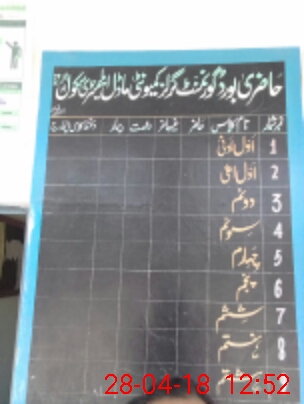 حاضری بورڈ گورنمنٹ گرلز کمیونٹی ماڈل ایلیمنٹری سکول
نمبر شمار نام کلاس حاضر غیر حاضر رخصت بیمار دستخط کلاس انچارج
1 اول ادنیٰ
2 اول اعلیٰ
3 دوئم
4 سوئم
5 چہارم
6 پنجم
7 ششم
8 ہفتم
ہشتم
28-04-18 12:52